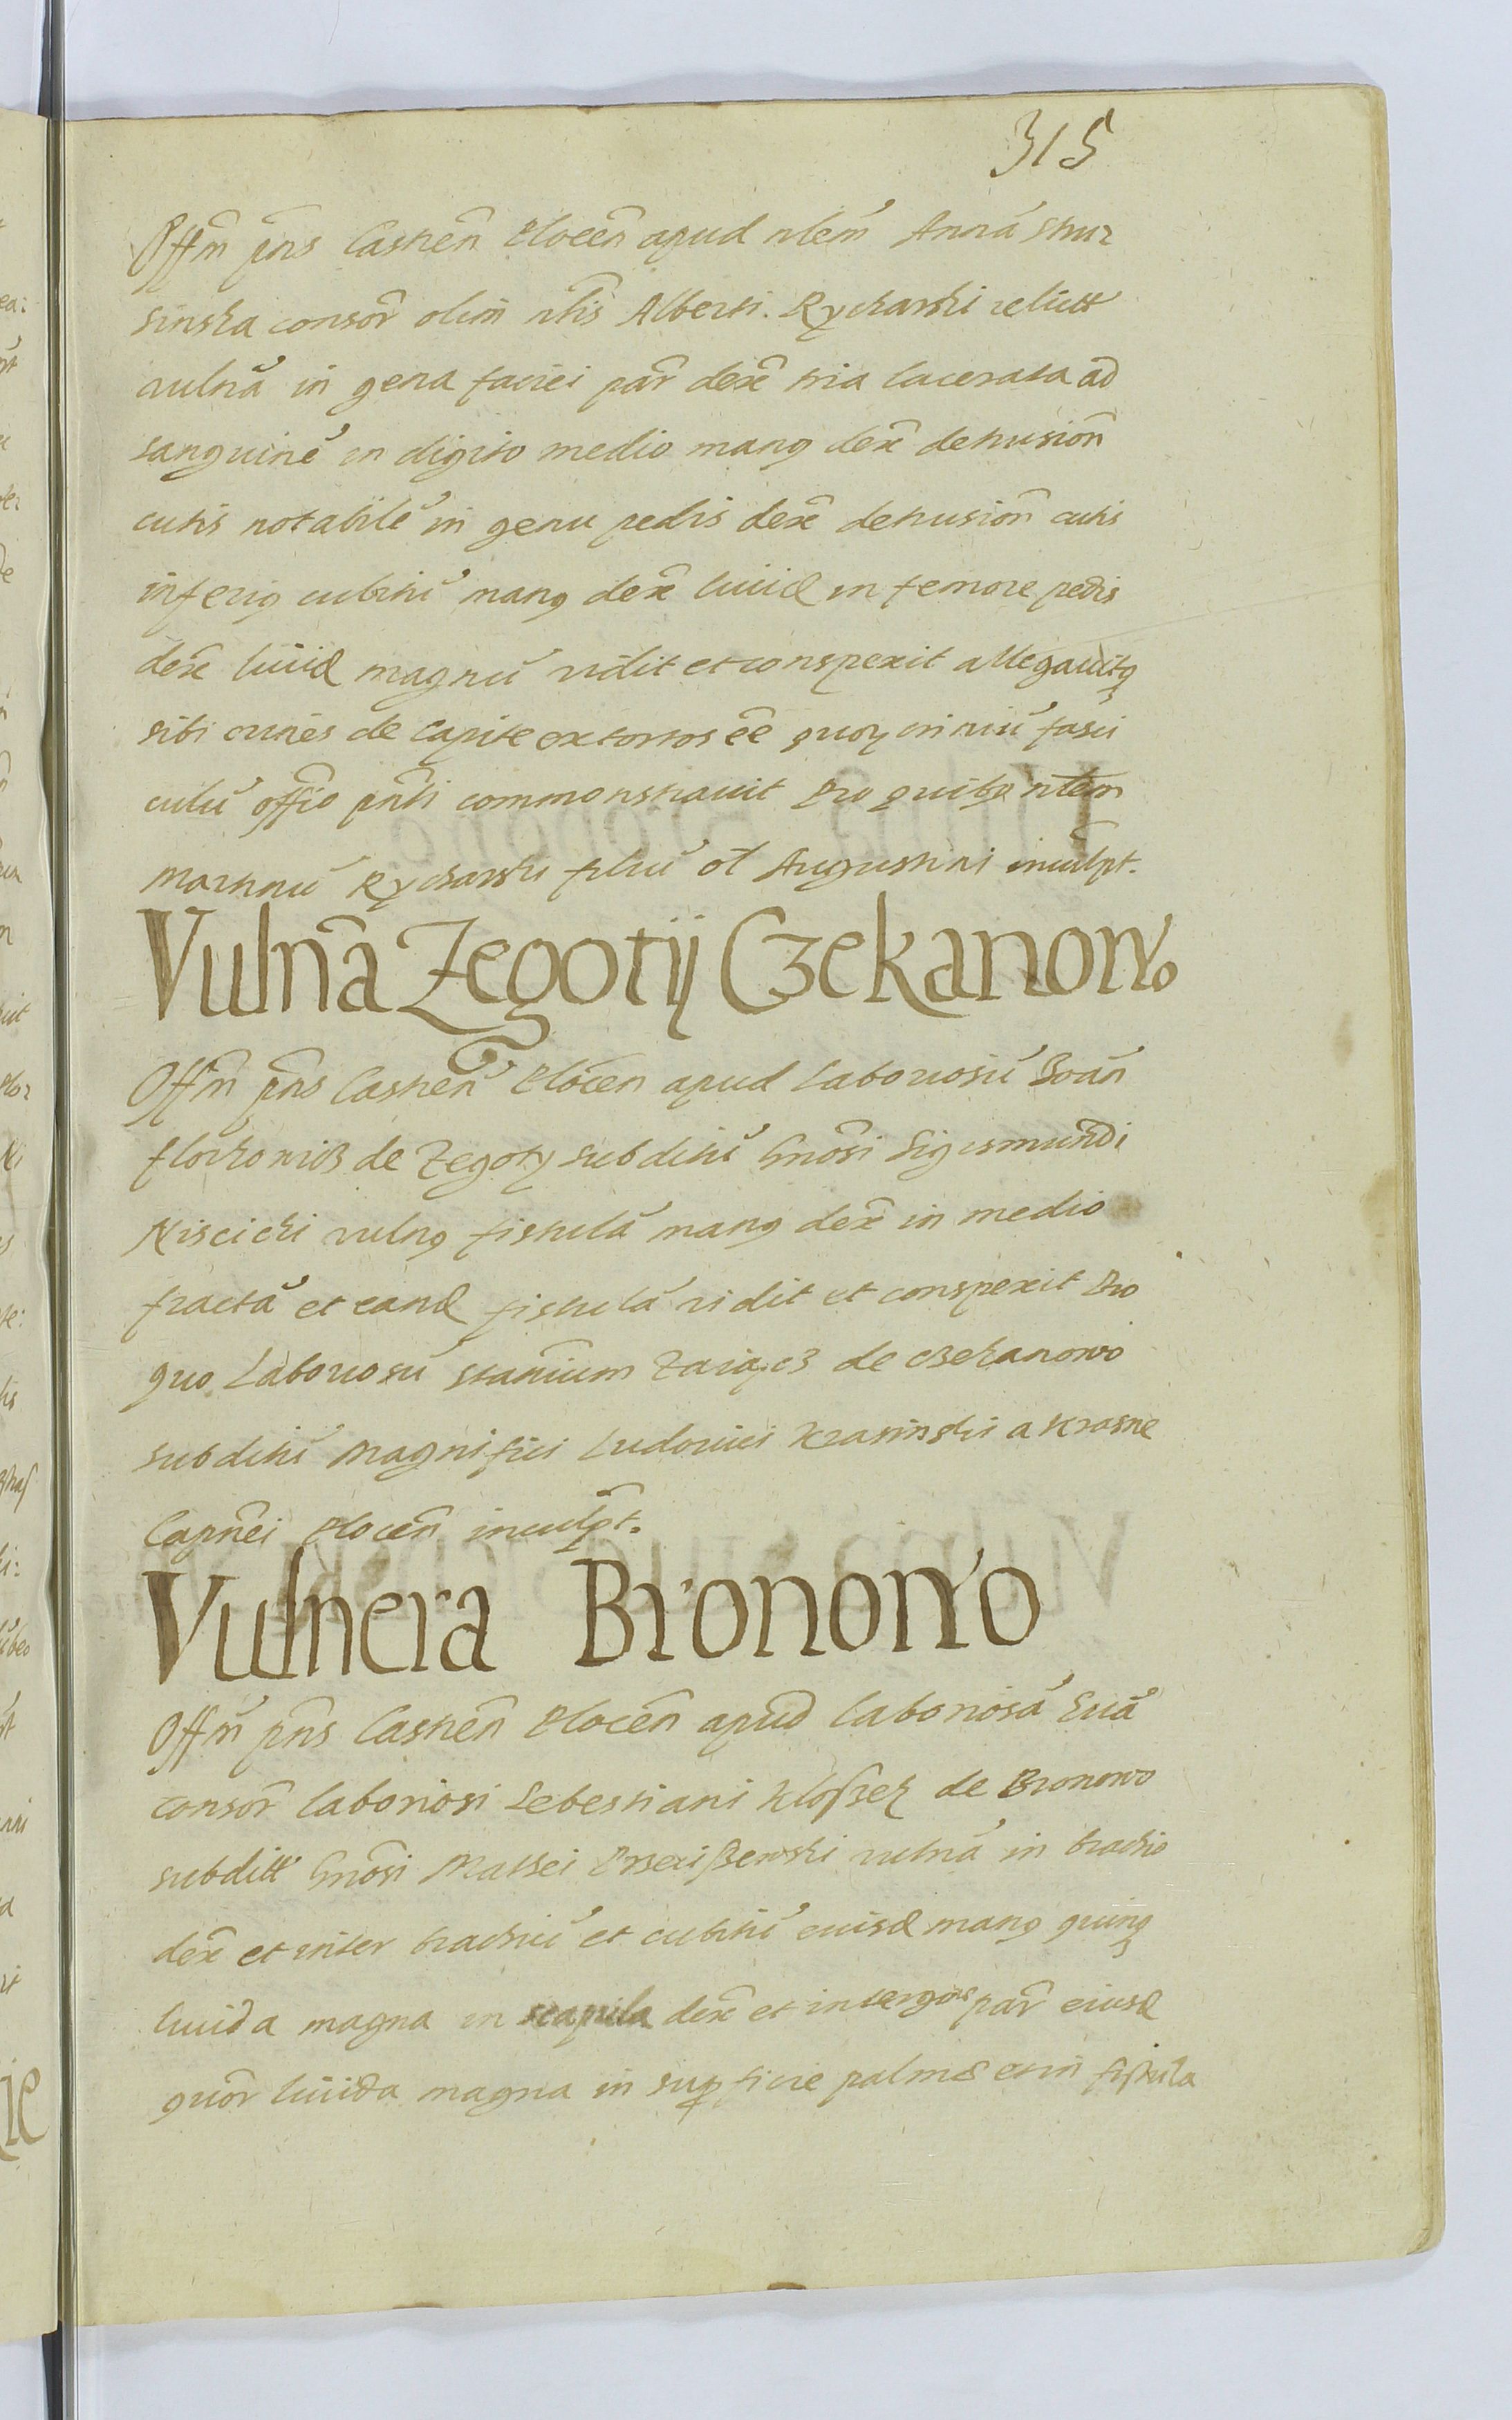 315
Offm pns Castren Plocen apud nlem Anná Skur
sinska consor olim nlis Alberti Rycharski relictt
vulnā in gena faciei par dex tria lacerata ad
sanguinē in digito medio manq dex detrusion
cutis notabilē in genu pedis dex detrusion cutis
inferiq cubitū manq dex livid in femore pedis
dex livid magnū vidit et conspexit allegavitq
sibi crines de capite extortos ee quor criniū fasci
culū offio pnti commonstravit Pro quibq nlem
Martinū Rycharski filiū ol Augustini inculpt.
Vulnā Zegotij Czekanowo
Offm pns Castren Plocen apud Laboriosū Joan
Flor de Zegoty subditū Gnosi Sigismundi
Niscicki vulnq fistulā manq dex in medio
fractā et eand fistulā vidit et conspexit Pro
quo Laboriosū Stanium Zaiącz de Czekanowo
subditū Magnifici Ludovici Krasinski a Krasne
Capnei Plocen inculpt.
Vulnera Bronowo
Offm pns Castren Plocen apud Laboriosā Evā
consor laboriosi Sebestiani de Bronowo
subditt Gnosi Mathei vulnā in brachio
dex et inter brachiū et cubitū eiusd manq quinq
livida magna in scapula dex et in tergoris par eiusd
quor livida magna in supficie palmae et in fistula